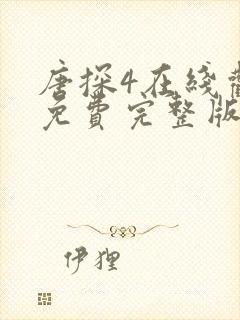 唐探4在线
免费完整版
伊狸